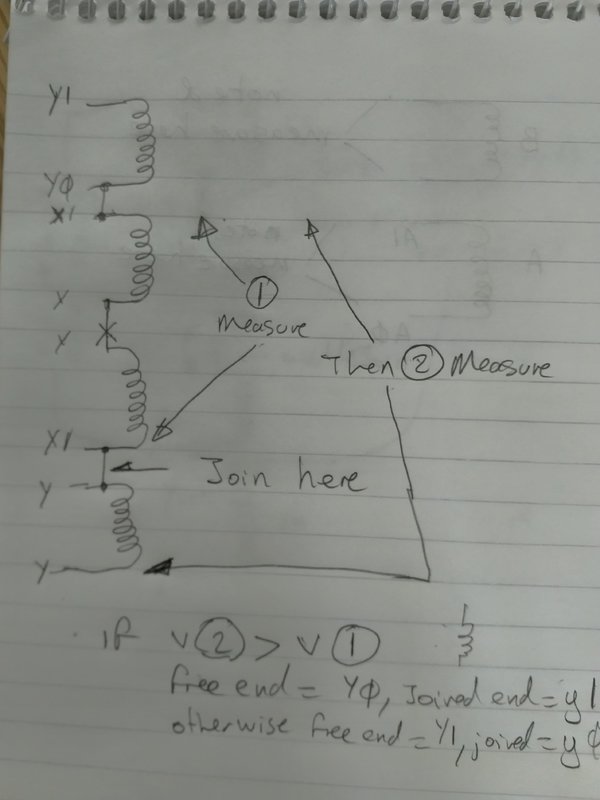 Y1
YΦ
X1
X
X
① Measure
Then ② Measure
X1
Join here
Y
Y
If V② > V①
free end = YΦ, Joined end = y1
otherwise free end = Y1, joined = yΦ